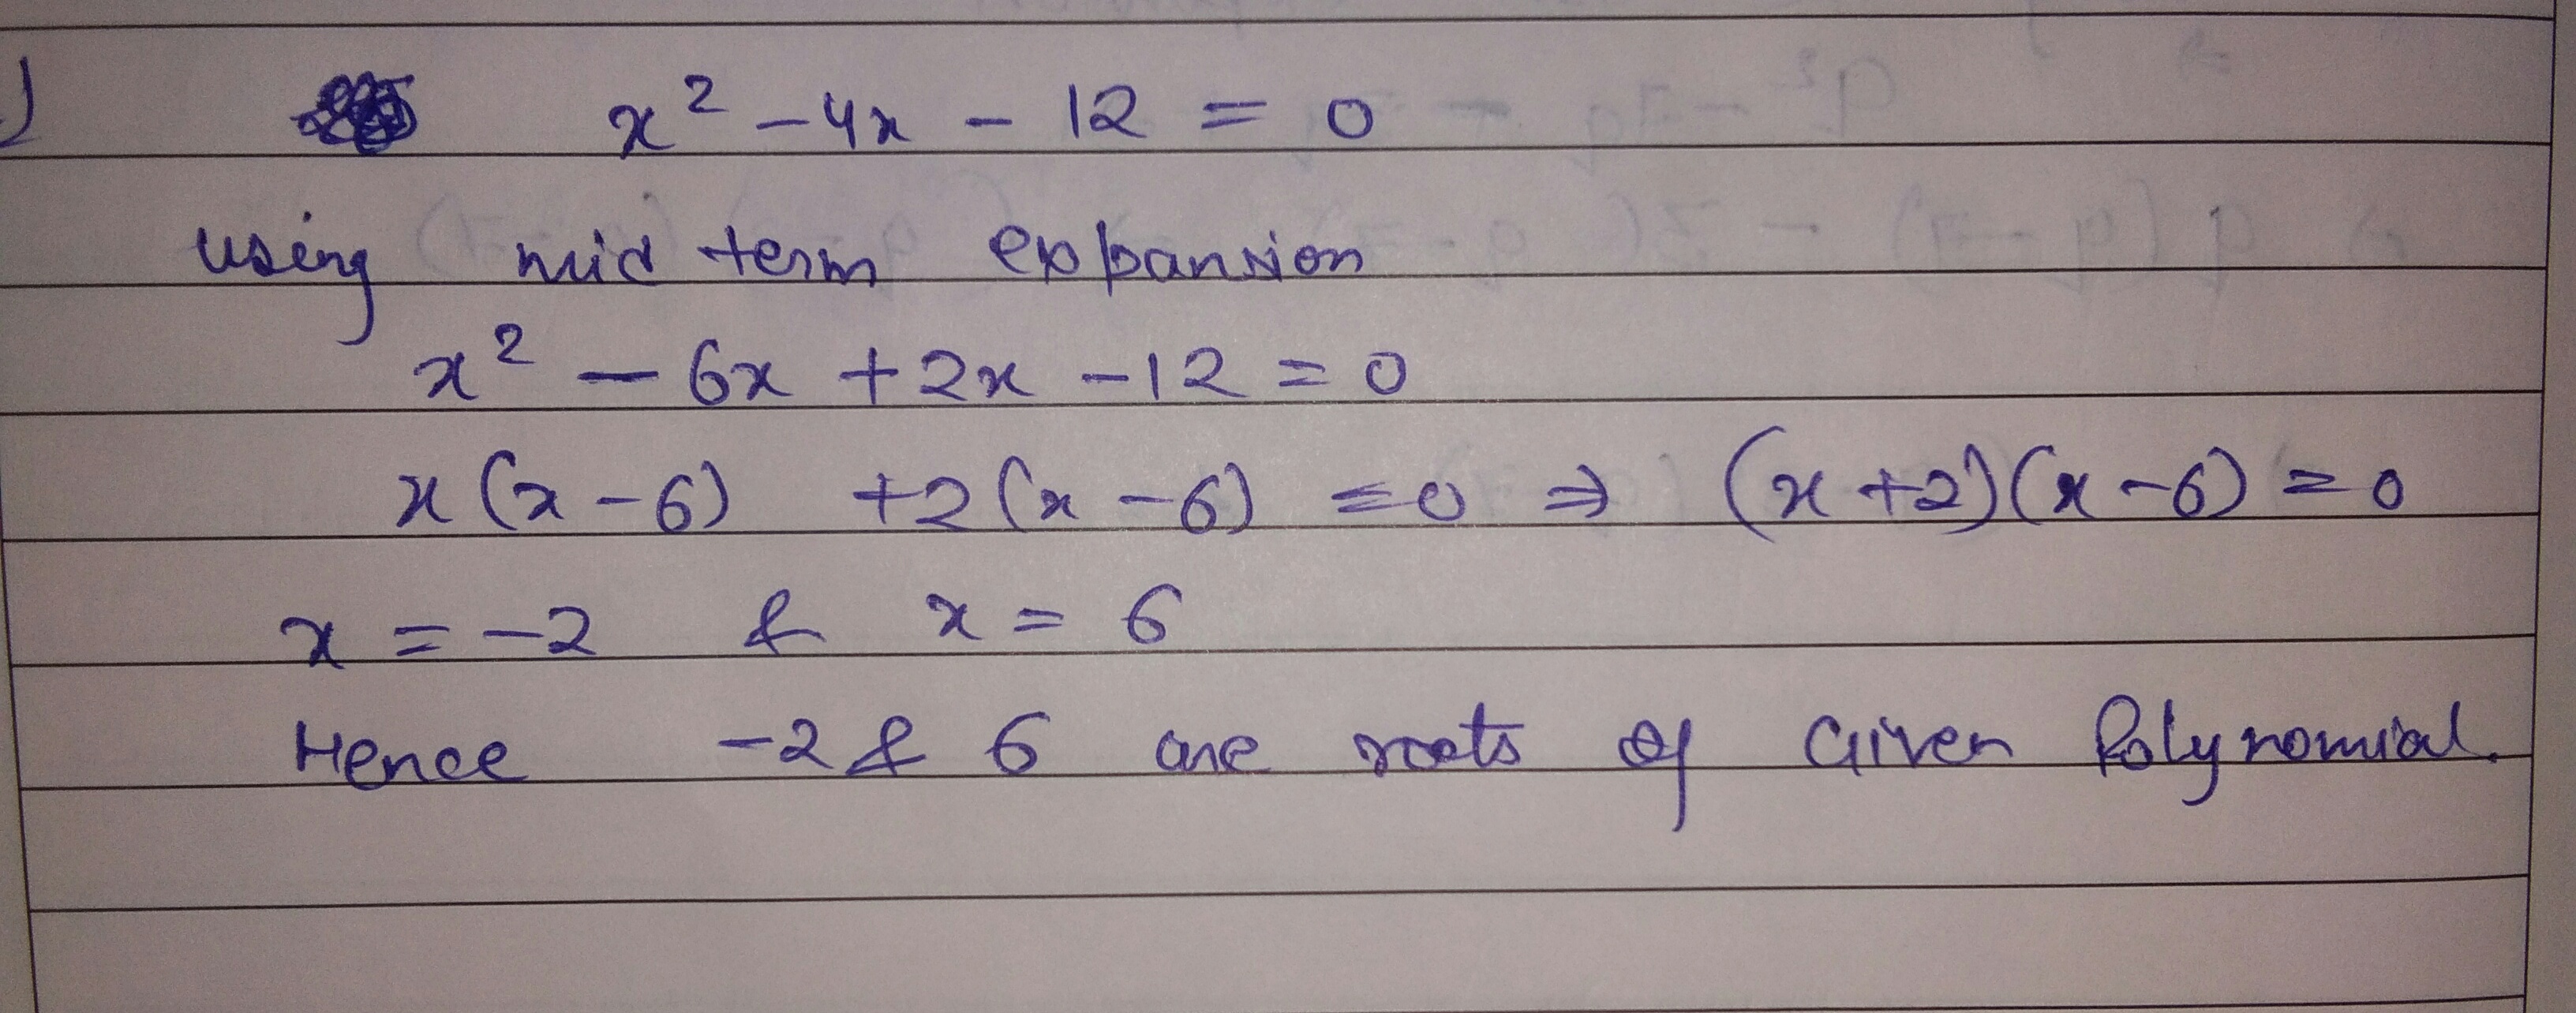 ) x² - 4x - 12 = 0
using mid term expansion
x² - 6x + 2x - 12 = 0
x(x - 6) + 2(x - 6) = 0 ⇒ (x + 2)(x - 6) = 0
x = -2 & x = 6
Hence -2 & 6 are roots of Given Polynomial.